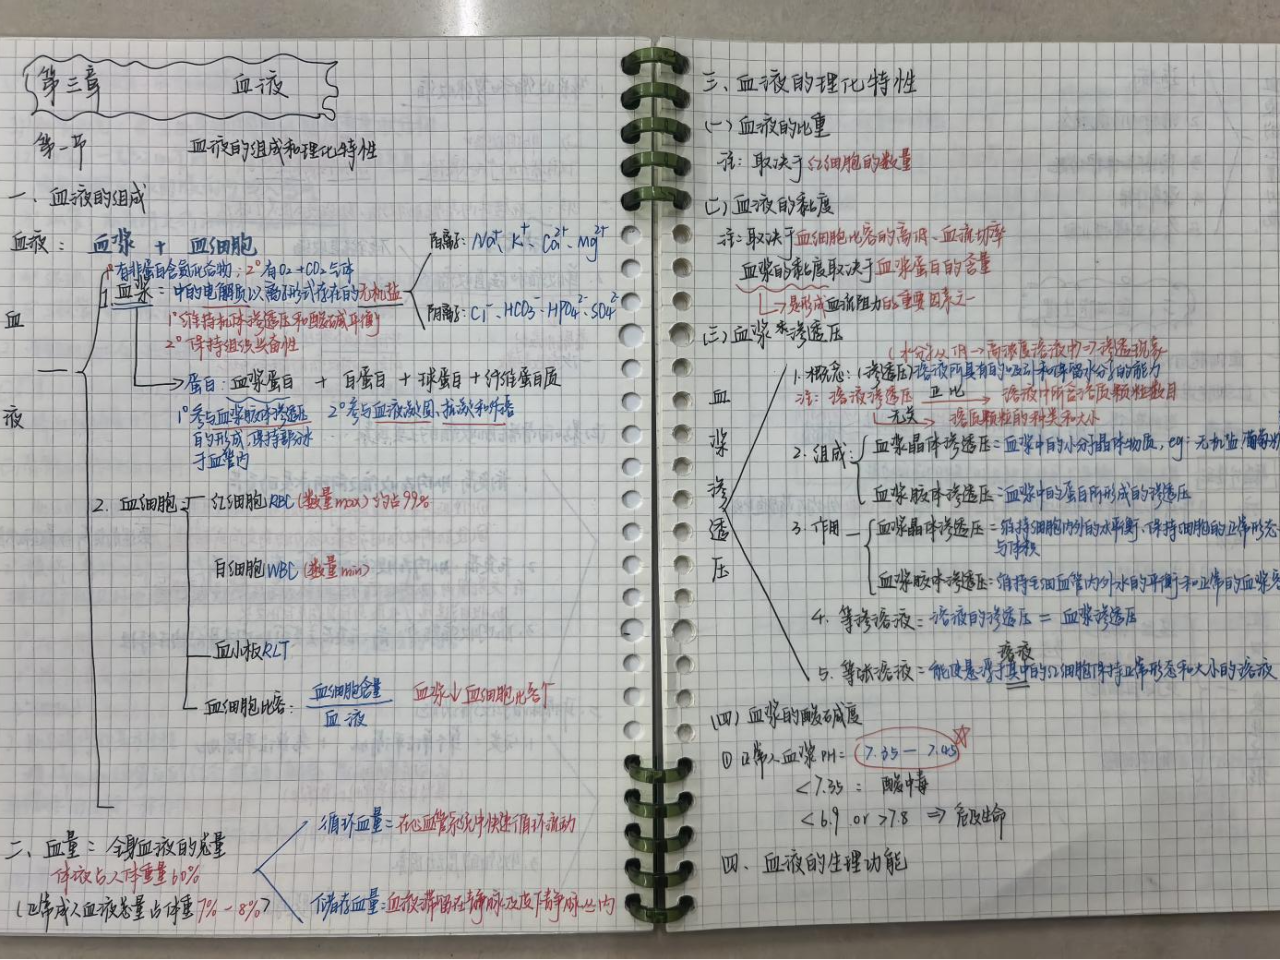 第三章 血液
第一节 血液的组成和理化特性
一、血液的组成
血液: 血浆 + 血细胞
1°有非蛋白含氮化合物; 2°有O₂+CO₂气体
1. 血浆: 中的电解质以离子形式存在的无机盐
阳离子: Na⁺、K⁺、Ca²⁺、Mg²⁺
阴离子: Cl⁻、HCO₃⁻、HPO₄²⁻、SO₄²⁻
1°维持机体渗透压和酸碱平衡
2°保持组织兴奋性
蛋白: 血浆蛋白 + 白蛋白 + 球蛋白 + 纤维蛋白质
1°参与血浆胶体渗透压
的形成,保持部分水
于血管内
2°参与血液凝固、抗凝和纤溶
血
液
2. 血细胞
红细胞RBC(数量max)约占99%
白细胞WBC(数量min)
血小板RLT
血细胞比容: 血细胞含量
血液
血浆↓血细胞比容↑
二、血量: 全身血液的总量
体液占人体重量60%
(正常成人血液总量占体重7%-8%)
循环血量: 在心血管系统中快速循环流动
储存血量: 血液滞留在静脉及皮下静脉丛内
三、血液的理化特性
(一)血液的比重
注: 取决于红细胞的数量
(二)血液的黏度
注: 取决于血细胞比容的高低、血流切率
血浆的黏度取决于血浆蛋白的含量
是形成血流阻力的重要因素之一
(三)血浆渗透压
(水分从低→高浓度溶液中)=渗透现象
1. 概念: (渗透压)溶液所具有的吸引和保留水分子的能力
注: 溶液渗透压 正比 溶液中所含溶质颗粒数目
无关 溶质颗粒的种类和大小
血
浆
渗
透
压
2. 组成: 血浆晶体渗透压=血浆中的小分子晶体物质, eg: 无机盐 葡萄
血浆胶体渗透压=血浆中的蛋白所形成的渗透压
3. 作用 血浆晶体渗透压=维持细胞内外的水平衡、保持细胞的正常形态
与体积
血浆胶体渗透压: 维持毛细血管内外水的平衡和正常的血浆
4. 等渗溶液: 溶液的渗透压 = 血浆渗透压
溶液
5. 等张溶液=能使悬浮于其中的红细胞保持正常形态和大小的溶液
(四)血浆的酸碱度
① 正常人血浆PH= 7.35-7.45
<7.35: 酸中毒
<6.9 or >7.8 ⇒ 危及生命
四、血液的生理功能